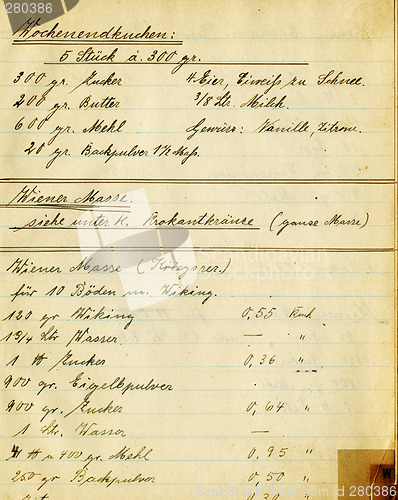 280386
Wochenendkuchen:
5 Stück á. 300 gr.
300 gr. Zucker 4 Eier, Eiweiß zu Schnee.
200 gr. Butter 3/8 Ltr. Milch.
600 gr. Mehl Gewürz: Vanille, Zitrone.
20 gr. Backpulver 1½
Wiener Masse.
siehe unter K. Krokantkränze (ganze Masse)
Wiener Masse (Kriegsrez.)
für 10 Böden m. Wiking.
120 gr Wiking 0,55
1 3/4 Ltr Wasser — "
1 ℔ Zucker 0,36 "
900 gr. Eigelbpulver
900 gr. Zucker 0,64 "
1 Ltr. Wasser — "
℔ u 400 gr. Mehl 0,95 "
250 gr Backpulver 0,50 "
0,30 "
W
© 280386